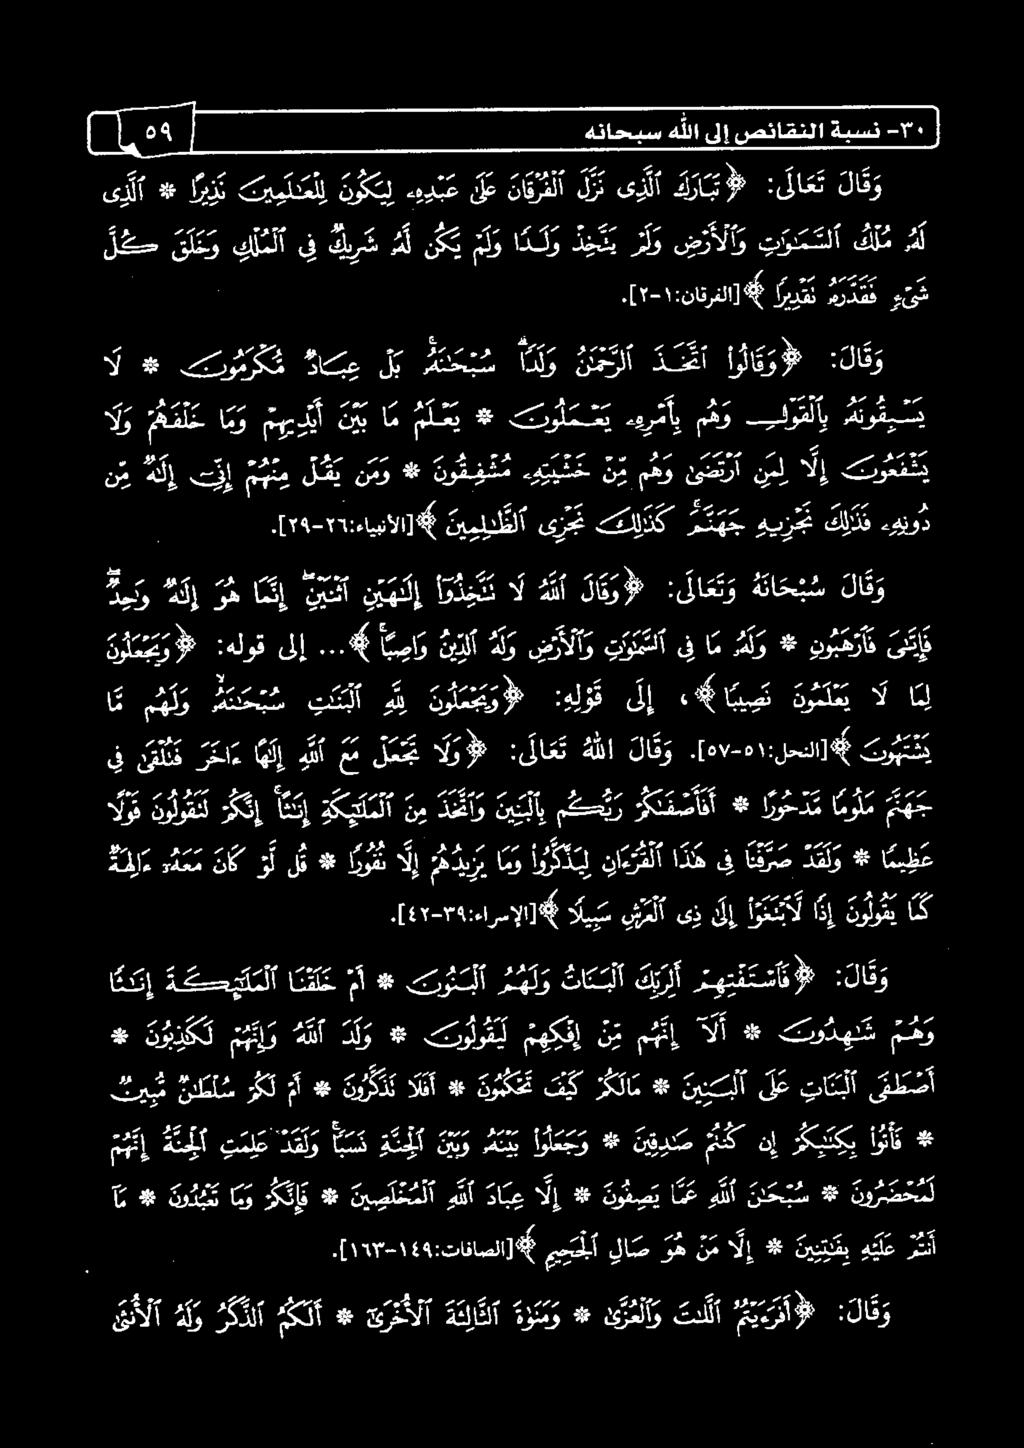 ٣٠- نسبة النقائص إلى الله سبحانه
٥٩
وَقَالَ تَعَالَى: ﴿تَبَارَكَ ٱلَّذِى نَزَّلَ ٱلْفُرْقَانَ عَلَىٰ عَبْدِهِۦ لِيَكُونَ لِلْعَـٰلَمِينَ نَذِيرًا * ٱلَّذِى
لَهُۥ مُلْكُ ٱلسَّمَـٰوَٰتِ وَٱلْأَرْضِ وَلَمْ يَتَّخِذْ وَلَدًا وَلَمْ يَكُن لَّهُۥ شَرِيكٌ فِى ٱلْمُلْكِ وَخَلَقَ كُلَّ
شَىْءٍ فَقَدَّرَهُۥ نَقْدِيرًا﴾ [الفرقان:١-٢].
وَقَالَ: ﴿وَقَالُوا۟ ٱتَّخَذَ ٱلرَّحْمَـٰنُ وَلَدًا ۗ سُبْحَـٰنَهُۥ ۚ بَلْ عِبَادٌ مُّكْرَمُونَ * لَا
يَسْبِقُونَهُۥ بِٱلْقَوْلِ وَهُم بِأَمْرِهِۦ يَعْمَلُونَ * يَعْلَمُ مَا بَيْنَ أَيْدِيهِمْ وَمَا خَلْفَهُمْ وَلَا
يَشْفَعُونَ إِلَّا لِمَنِ ٱرْتَضَىٰ وَهُم مِّنْ خَشْيَتِهِۦ مُشْفِقُونَ * وَمَن يَقُلْ مِنْهُمْ إِنِّىٓ إِلَـٰهٌ مِّن
دُونِهِۦ فَذَٰلِكَ نَجْزِيهِ جَهَنَّمَ ۚ كَذَٰلِكَ نَجْزِى ٱلظَّـٰلِمِينَ﴾ [الأنبياء:٢٦-٢٩].
وَقَالَ سُبْحَانَهُ وَتَعَالَى: ﴿وَقَالَ ٱللَّهُ لَا تَتَّخِذُوٓا۟ إِلَـٰهَيْنِ ٱثْنَيْنِ ۖ إِنَّمَا هُوَ إِلَـٰهٌ وَٰحِدٌ ۖ
فَإِيَّـٰىَ فَٱرْهَبُونِ * وَلَهُۥ مَا فِى ٱلسَّمَـٰوَٰتِ وَٱلْأَرْضِ وَلَهُ ٱلدِّينُ وَاصِبًا ۚ﴾... إلى قوله: ﴿وَيَجْعَلُونَ
لِمَا لَا يَعْلَمُونَ نَصِيبًا﴾، إِلَى قَوْلِهِ: ﴿وَيَجْعَلُونَ لِلَّهِ ٱلْبَنَـٰتِ سُبْحَـٰنَهُۥ ۙ وَلَهُم مَّا
يَشْتَهُونَ﴾ [النحل:٥١-٥٧]. وَقَالَ اللهُ تَعَالَى: ﴿وَلَا تَجْعَلْ مَعَ ٱللَّهِ إِلَـٰهًا ءَاخَرَ فَتُلْقَىٰ فِى
جَهَنَّمَ مَلُومًا مَّدْحُورًا * أَفَأَصْفَىٰكُمْ رَبُّكُم بِٱلْبَنِينَ وَٱتَّخَذَ مِنَ ٱلْمَلَـٰٓئِكَةِ إِنَـٰثًا ۚ إِنَّكُمْ لَتَقُولُونَ قَوْلًا
عَظِيمًا * وَلَقَدْ صَرَّفْنَا فِى هَـٰذَا ٱلْقُرْءَانِ لِيَذَّكَّرُوا۟ وَمَا يَزِيدُهُمْ إِلَّا نُفُورًا * قُل لَّوْ كَانَ مَعَهُۥٓ ءَالِهَةٌ
كَمَا يَقُولُونَ إِذًا لَّٱبْتَغَوْا۟ إِلَىٰ ذِى ٱلْعَرْشِ سَبِيلًا﴾ [الإسراء:٣٩-٤٢].
وَقَالَ: ﴿فَٱسْتَفْتِهِمْ أَلِرَبِّكَ ٱلْبَنَاتُ وَلَهُمُ ٱلْبَنُونَ * أَمْ خَلَقْنَا ٱلْمَلَـٰٓئِكَةَ إِنَـٰثًا
وَهُمْ شَـٰهِدُونَ * أَلَآ إِنَّهُم مِّنْ إِفْكِهِمْ لَيَقُولُونَ * وَلَدَ ٱللَّهُ وَإِنَّهُمْ لَكَـٰذِبُونَ *
أَصْطَفَى ٱلْبَنَاتِ عَلَى ٱلْبَنِينَ * مَالَكُمْ كَيْفَ تَحْكُمُونَ * أَفَلَا تَذَكَّرُونَ * أَمْ لَكُمْ سُلْطَـٰنٌ مُّبِينٌ
* فَأْتُوا۟ بِكِتَـٰبِكُمْ إِن كُنتُمْ صَـٰدِقِينَ * وَجَعَلُوا۟ بَيْنَهُۥ وَبَيْنَ ٱلْجِنَّةِ نَسَبًا ۚ وَلَقَدْ عَلِمَتِ ٱلْجِنَّةُ إِنَّهُمْ
لَمُحْضَرُونَ * سُبْحَـٰنَ ٱللَّهِ عَمَّا يَصِفُونَ * إِلَّا عِبَادَ ٱللَّهِ ٱلْمُخْلَصِينَ * فَإِنَّكُمْ وَمَا تَعْبُدُونَ * مَآ
أَنتُمْ عَلَيْهِ بِفَـٰتِنِينَ * إِلَّا مَنْ هُوَ صَالِ ٱلْجَحِيمِ﴾ [الصافات:١٤٩-١٦٣].
وَقَالَ: ﴿أَفَرَءَيْتُمُ ٱللَّـٰتَ وَٱلْعُزَّىٰ * وَمَنَوٰةَ ٱلثَّالِثَةَ ٱلْأُخْرَىٰٓ * أَلَكُمُ ٱلذَّكَرُ وَلَهُ ٱلْأُنثَىٰ